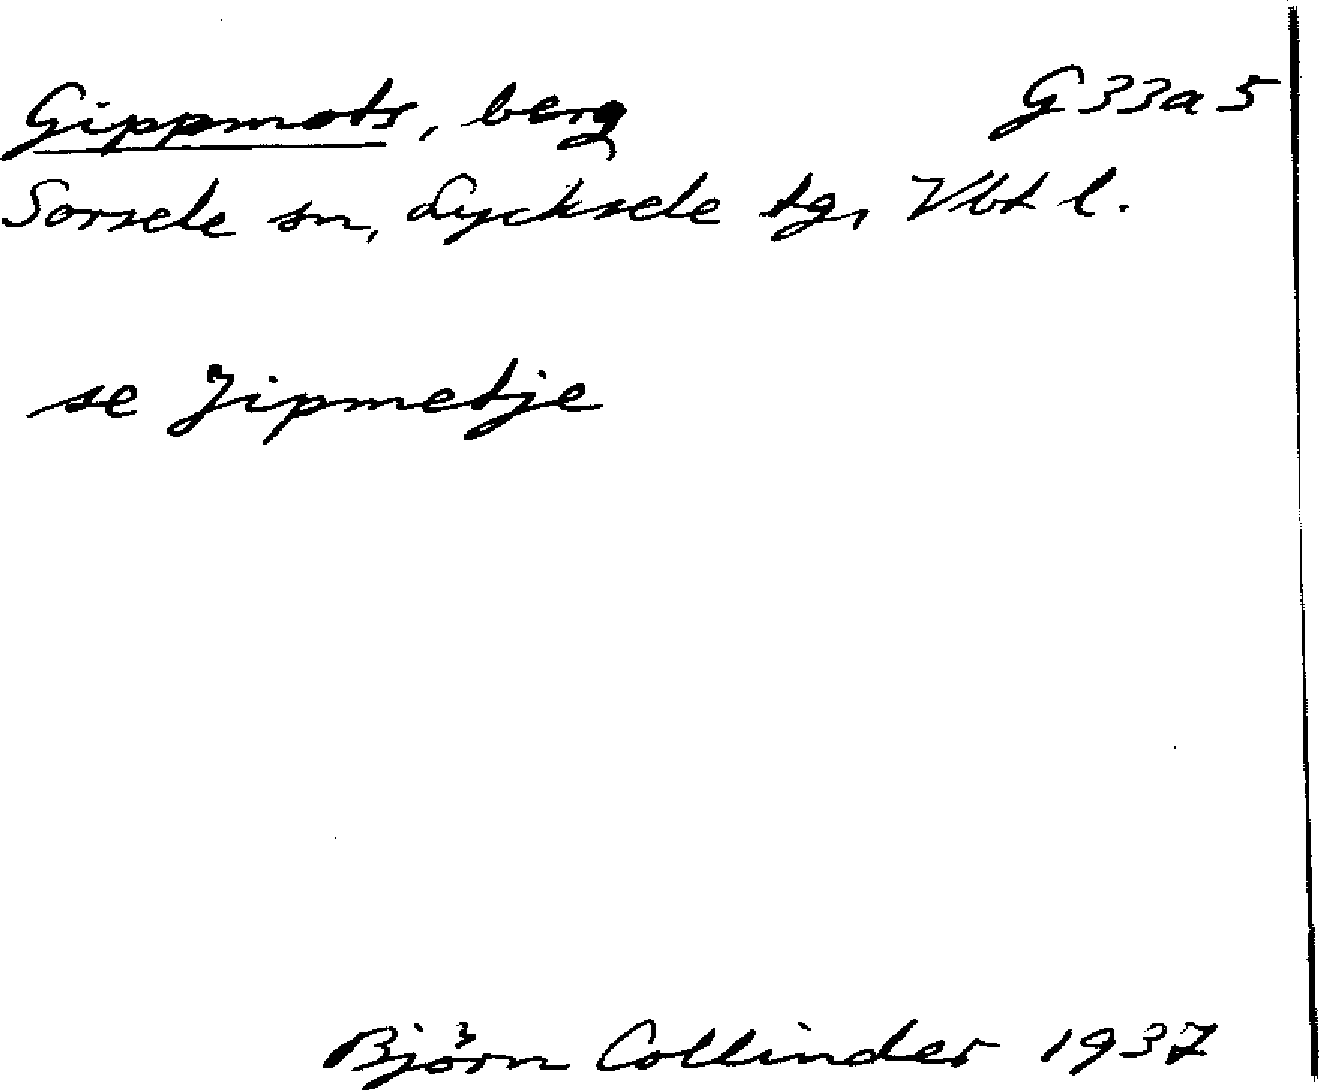 Gippmots, berg G33a5
Sorsele sn, Lycksele tg, Vbt l.
se Jipmetje
Björn Collinder 1937